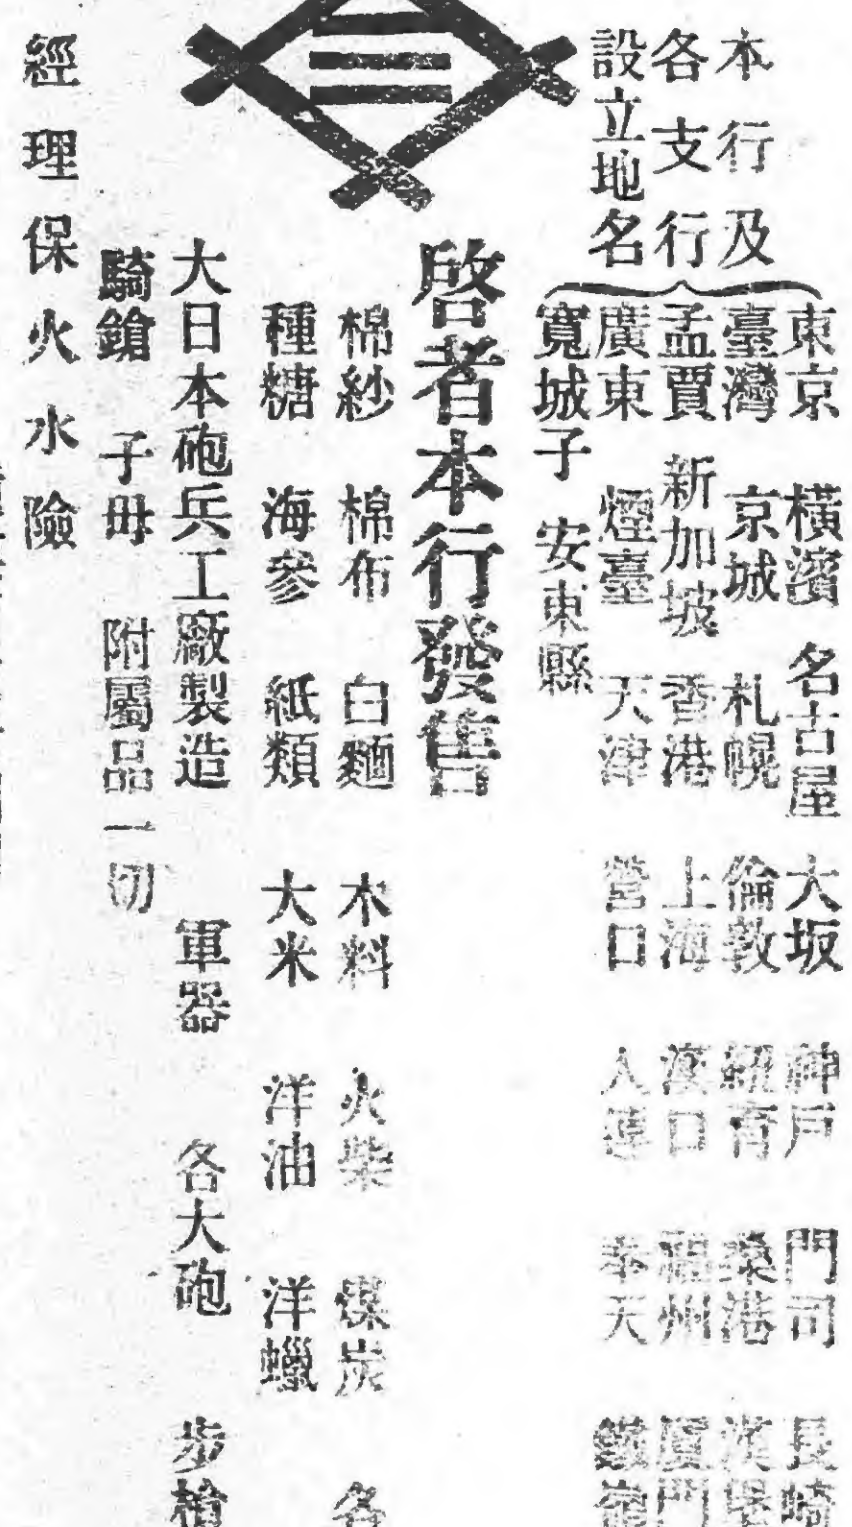 本行及
各支行
設立地名
東京 橫濱 名古屋 大坂 神戶 門司 長崎
臺灣 京城 札幌 倫敦 紐育 桑港 漢堡
孟買 新加坡 香港 上海 漢口 福州 廈門
廣東 煙臺 天津 營口 大連 奉天 鐵嶺
寬城子 安東縣
啓者本行發售
棉紗 棉布 白麵 木料 火柴 煤炭 各
種糖 海參 紙類 大米 洋油 洋蠟
大日本砲兵工廠製造 軍器 各大砲 步槍
騎鎗 子毋 附屬品一切
經理保火水險